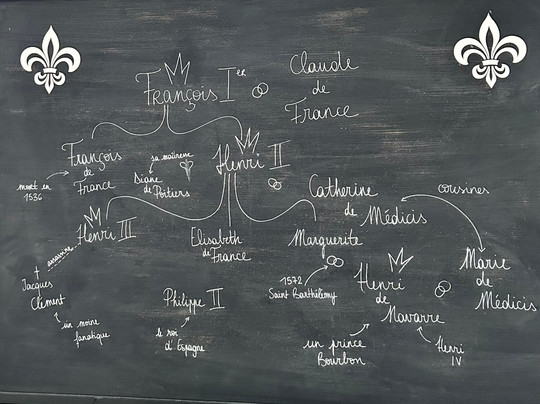 François Ier
Claude
de
France
François
de
France
mort en
1536
sa maîtresse
Diane
de
Poitiers
Henri II
Catherine
de
Médicis
cousines
Henri III
Elisabeth
de France
Marguerite
Marie
de
Médicis
assassine
Jacques
Clément
un moine
fanatique
Philippe II
le roi
d'Espagne
1572
Saint Barthélémy
Henri
de
Navarre
un prince
Bourbon
Henri
IV